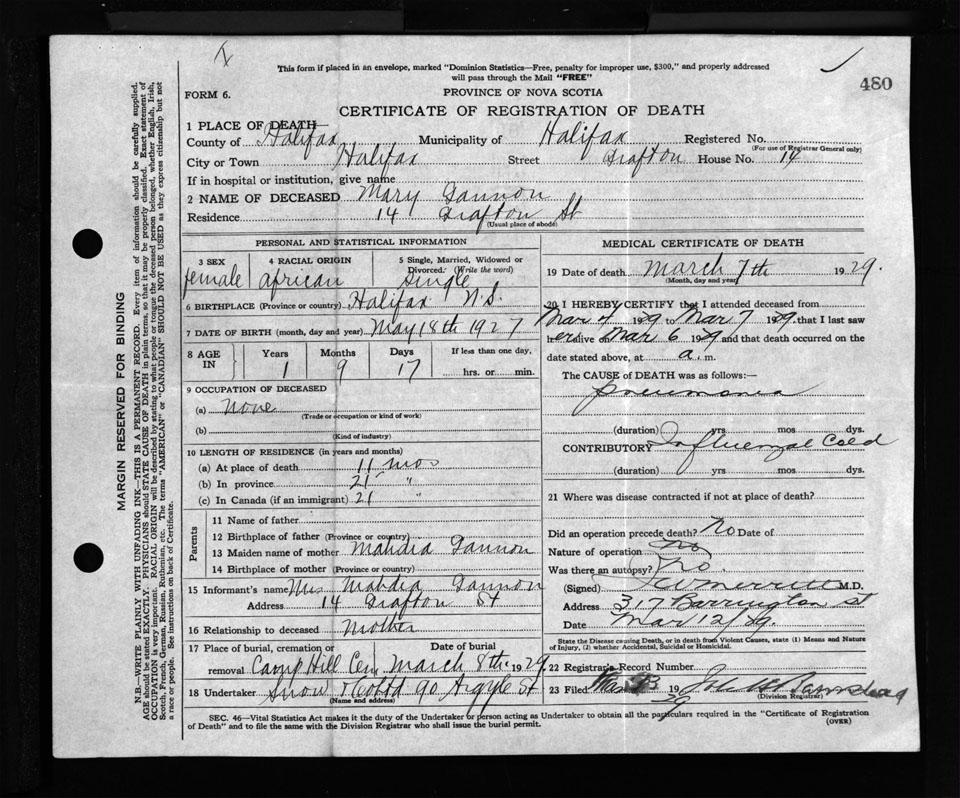 This form if placed in an envelope, marked "Dominion Statistics—Free, penalty for improper use, $300," and properly addressed
will pass through the Mail "FREE"
480
FORM 6.
PROVINCE OF NOVA SCOTIA
CERTIFICATE OF REGISTRATION OF DEATH
1 PLACE OF DEATH
County of Halifax Municipality of Halifax Registered No.
(For use of Registrar General only)
City or Town Halifax Street Grafton House No. 14
If in hospital or institution, give name
2 NAME OF DECEASED Mary Gannon
Residence 14 Grafton St
(Usual place of abode)
PERSONAL AND STATISTICAL INFORMATION
3 SEX 4 RACIAL ORIGIN 5 Single, Married, Widowed or
Divorced. (Write the word)
female african Single
6 BIRTHPLACE (Province or country) Halifax N.S.
7 DATE OF BIRTH (month, day and year) May 18th 1927
8 AGE IN Years Months Days If less than one day,
1 9 17 hrs. or min.
9 OCCUPATION OF DECEASED
(a) None
(Trade or occupation or kind of work)
(b)
(Kind of industry)
10 LENGTH OF RESIDENCE (in years and months)
(a) At place of death 11 mos
(b) In province 21 "
(c) In Canada (if an immigrant) 21 "
Parents
11 Name of father
12 Birthplace of father (Province or country)
13 Maiden name of mother Gannon
14 Birthplace of mother (Province or country)
15 Informant's name Mrs Gannon
Address 14 Grafton St
16 Relationship to deceased Mother
17 Place of burial, cremation or removal Date of burial
Camp Hill Cem March 8th 1929
18 Undertaker Snow & Co Ltd 90 Argyle St
(Name and address)
MEDICAL CERTIFICATE OF DEATH
19 Date of death March 7th 1929.
(Month, day and year)
20 I HEREBY CERTIFY that I attended deceased from
Mar 4 1929 to Mar 7 1929, that I last saw
her alive on Mar 6 1929 and that death occurred on the
date stated above, at a. m.
The CAUSE of DEATH was as follows:—
pneumonia
(duration) yrs mos dys.
CONTRIBUTORY Influenzal Cold
(duration) yrs mos dys.
21 Where was disease contracted if not at place of death?
Did an operation precede death? No Date of
Nature of operation no
Was there an autopsy? no.
(Signed) M.D.
Address 317 Barrington St
Date Mar 12/29.
State the Disease causing Death, or in death from Violent Causes, state (1) Means and Nature
of Injury, (2) whether Accidental, Suicidal or Homicidal.
22 Registrar's Record Number
23 Filed Mar 13 1929
(Division Registrar)
SEC. 46—Vital Statistics Act makes it the duty of the Undertaker or person acting as Undertaker to obtain all the particulars required in the "Certificate of Registration
of Death" and to file the same with the Division Registrar who shall issue the burial permit.
(OVER)
MARGIN RESERVED FOR BINDING
N.B.—WRITE PLAINLY WITH UNFADING INK—THIS IS A PERMANENT RECORD. Every item of information should be carefully supplied.
AGE should be stated EXACTLY. PHYSICIANS should STATE CAUSE OF DEATH in plain terms, so that it may be properly classified. Exact statement of
OCCUPATION is very important. RACIAL ORIGIN will be described by stating to what people or tongue the deceased person belonged, whether English, Irish,
Scotch, French, German, Russian, Ruthenian, etc. The terms "AMERICAN" or "CANADIAN" SHOULD NOT BE USED as they express citizenship but not
a race or people. See instructions on back of Certificate.